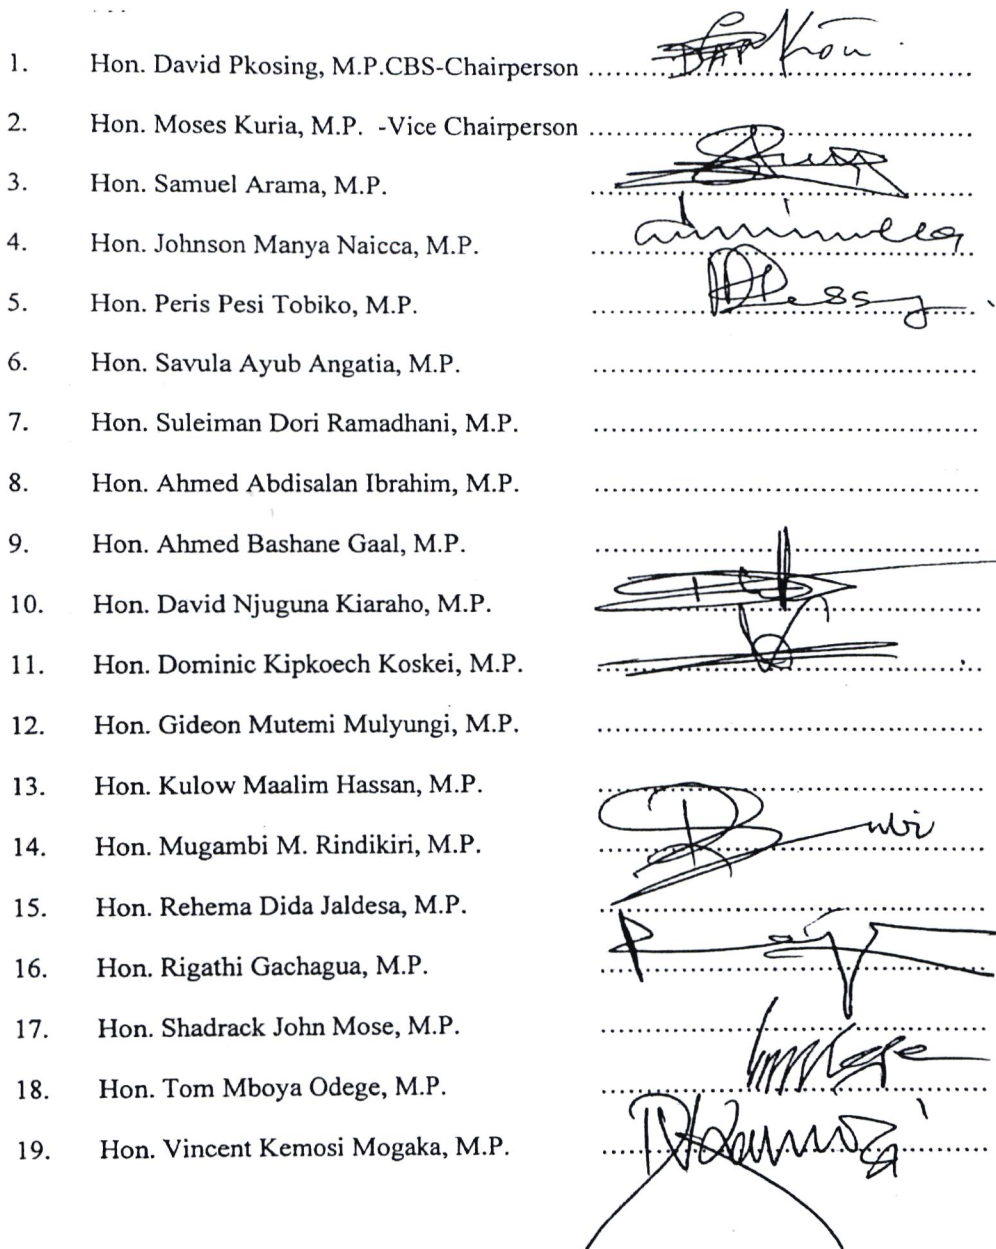 1. Hon. David Pkosing, M.P.CBS-Chairperson ..........
2. Hon. Moses Kuria, M.P. -Vice Chairperson ..........
3. Hon. Samuel Arama, M.P. ..........
4. Hon. Johnson Manya Naicca, M.P. ..........
5. Hon. Peris Pesi Tobiko, M.P. ..........
6. Hon. Savula Ayub Angatia, M.P. ..........
7. Hon. Suleiman Dori Ramadhani, M.P. ..........
8. Hon. Ahmed Abdisalan Ibrahim, M.P. ..........
9. Hon. Ahmed Bashane Gaal, M.P. ..........
10. Hon. David Njuguna Kiaraho, M.P. ..........
11. Hon. Dominic Kipkoech Koskei, M.P. ..........
12. Hon. Gideon Mutemi Mulyungi, M.P. ..........
13. Hon. Kulow Maalim Hassan, M.P. ..........
14. Hon. Mugambi M. Rindikiri, M.P. ..........
15. Hon. Rehema Dida Jaldesa, M.P. ..........
16. Hon. Rigathi Gachagua, M.P. ..........
17. Hon. Shadrack John Mose, M.P. ..........
18. Hon. Tom Mboya Odege, M.P. ..........
19. Hon. Vincent Kemosi Mogaka, M.P. ..........